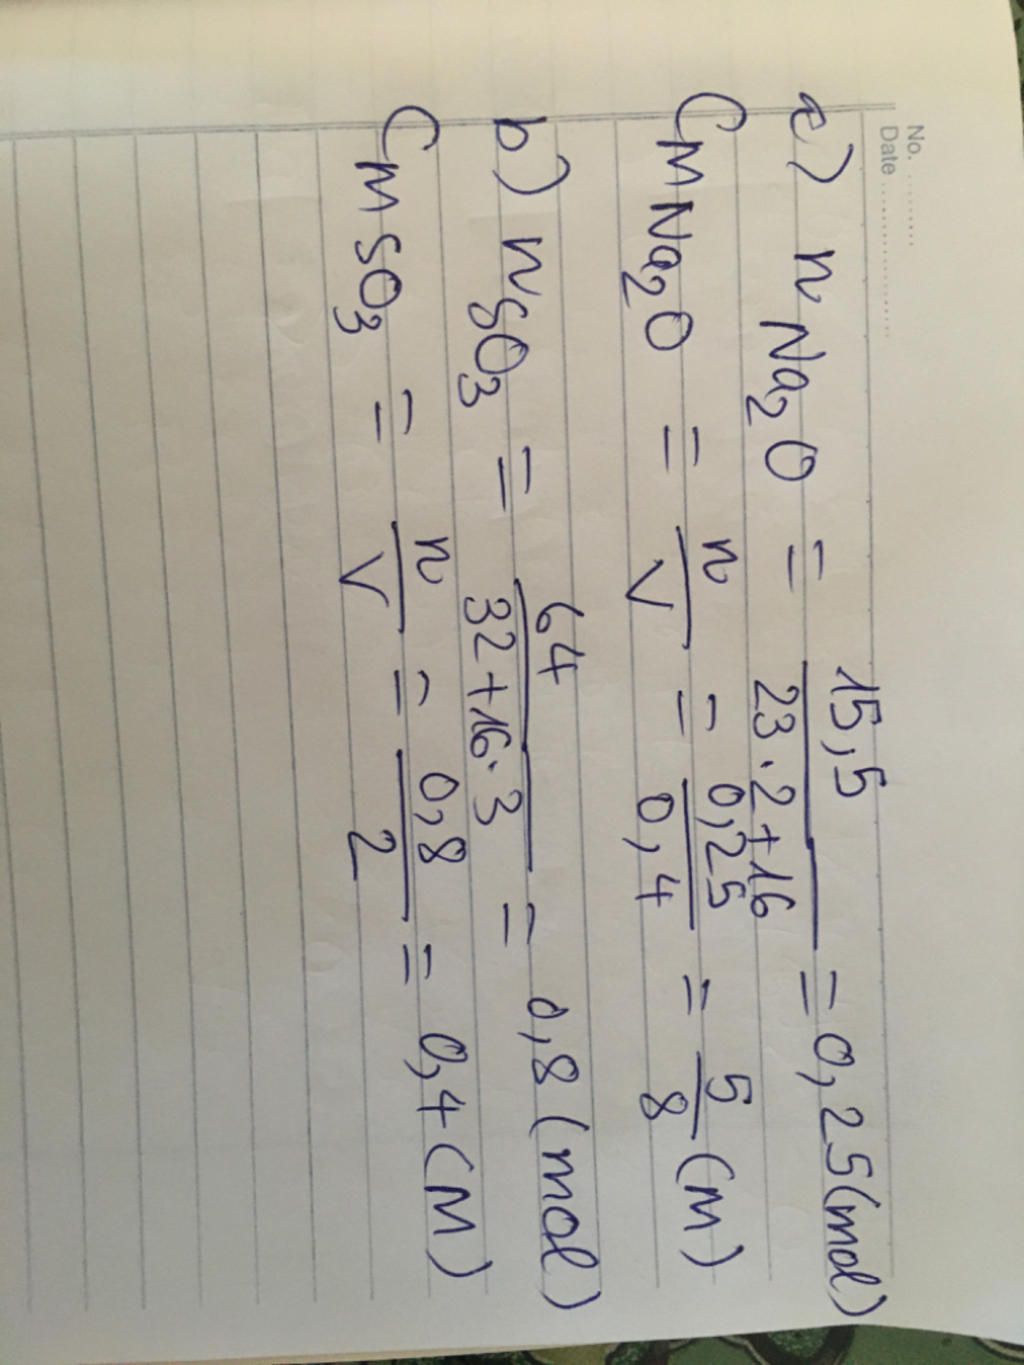 No. ..........
Date ....................
a) n Na₂O = 15,5 / 23.2+16 = 0,25(mol)
CM Na₂O = n / V = 0,25 / 0,4 = 5 / 8 (M)
b) nSO₃ = 64 / 32+16.3 = 0,8 (mol)
CM SO₃ = n / V = 0,8 / 2 = 0,4 (M)